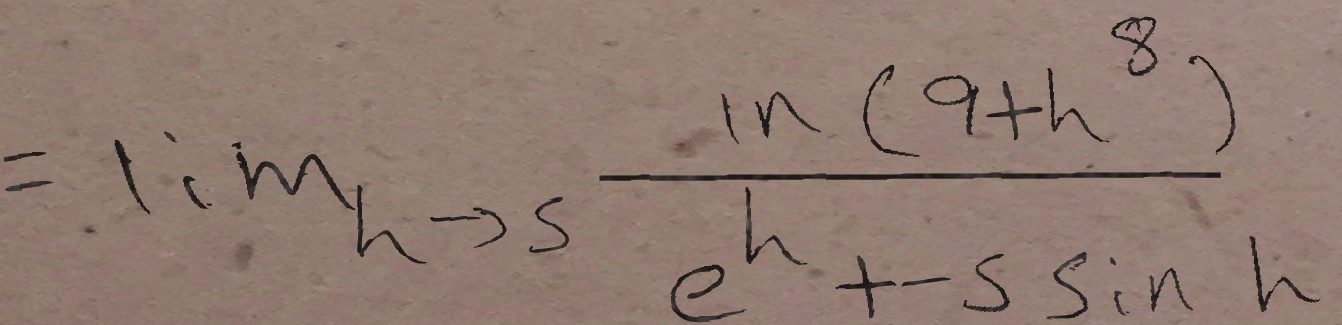 = lim_{h→5} \frac{ln(9+h^8)}{e^h+-5 sin h}